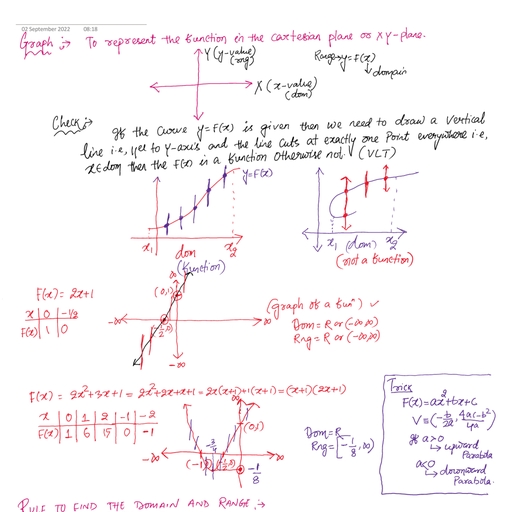 02 September 2022 08:18
Graph :→ To represent the function in the cartesian plane or XY-plane.
Y (y-value)
(rng)
Range→y=F(x)
↓domain
X (x-value)
(dom)
Check :→
If the curve y=F(x) is given then we need to draw a vertical
line i.e, yel to Y-axis and the line cuts at exactly one point everywhere i.e,
x∈dom then the F(x) is a function otherwise not. (VLT)
y=F(x)
x₁ x₂
dom
(function)
x₁ (dom) x₂
(not a function)
F(x) = 2x+1
x 0 -1/2
F(x) 1 0
∞
(0,1)
-∞ (-1/2,0) ∞
-∞
(Graph of a fun") ✓
Dom = R or (-∞,∞)
Rng = R or (-∞,∞)
F(x) = 2x²+3x+1 = 2x²+2x+x+1 = 2x(x+1)+1(x+1) = (x+1)(2x+1)
x 0 1 2 -1 -2
F(x) 1 6 15 0 -1
∞
-3/4
(0,1)
-∞ (-1,0) (-1/2,0) ∞
-1/8
Dom = R
Rng = [-1/8, ∞)
Trick
F(x) = ax²+bx+c
V = (-b/2a, 4ac-b²/4a)
If a>0
↳ upward
Parabola
a<0
↳ downward
Parabola.
RULE TO FIND THE DOMAIN AND RANGE :→